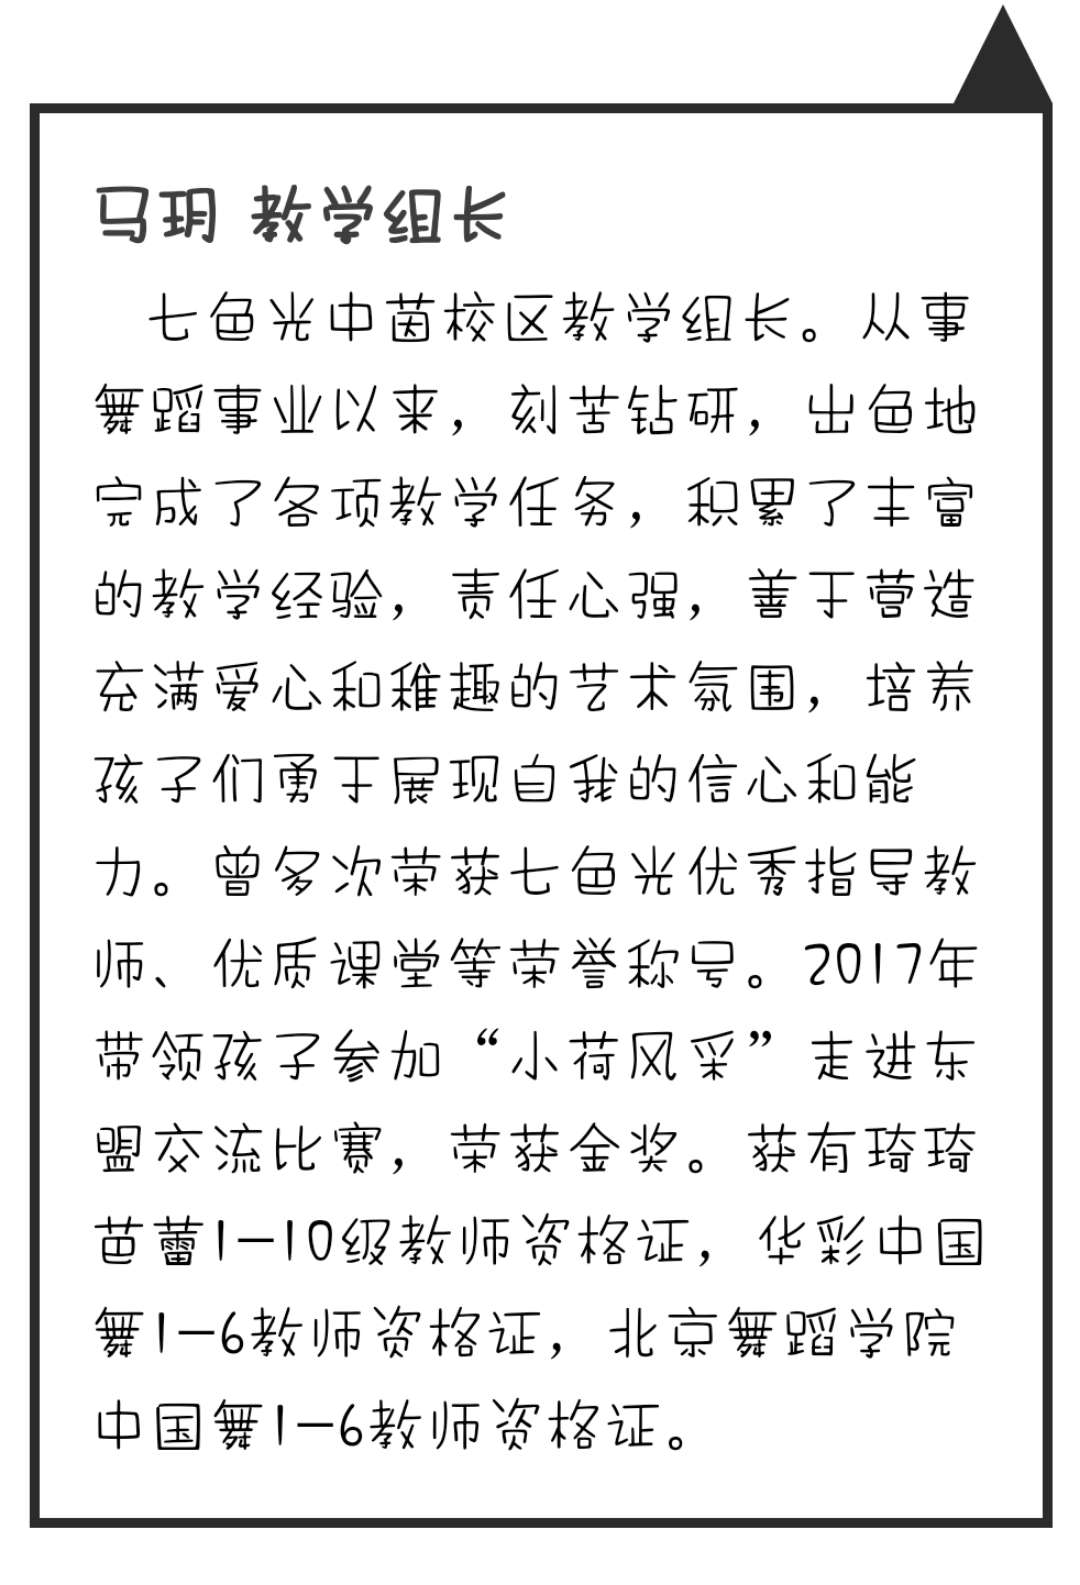 马玥 教学组长
七色光中茵校区教学组长。从事
舞蹈事业以来，刻苦钻研，出色地
完成了各项教学任务，积累了丰富
的教学经验，责任心强，善于营造
充满爱心和稚趣的艺术氛围，培养
孩子们勇于展现自我的信心和能
力。曾多次荣获七色光优秀指导教
师、优质课堂等荣誉称号。2017年
带领孩子参加“小荷风采”走进东
盟交流比赛，荣获金奖。获有琦琦
芭蕾1-10级教师资格证，华彩中国
舞1-6教师资格证，北京舞蹈学院
中国舞1-6教师资格证。